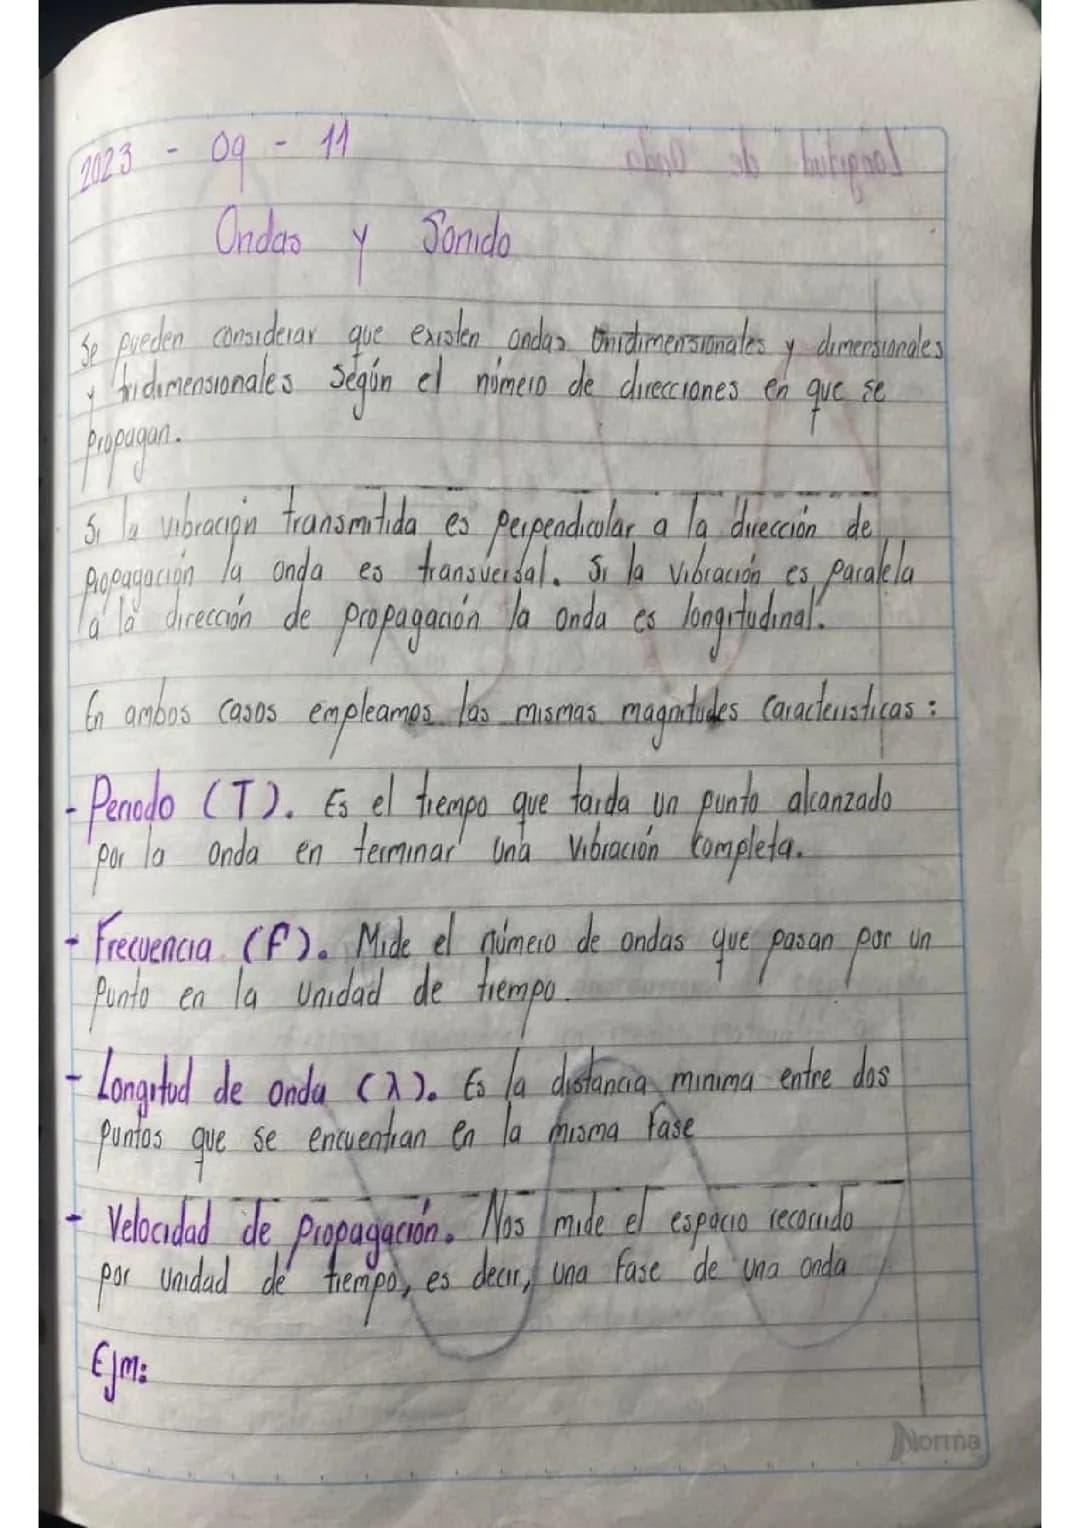 2023 - 09 - 11
Longitud de Onda
Ondas y Sonido
Se pueden considerar que existen ondas Unidimensionales y dimensionales
y tridimensionales Según el número de direcciones en que se
Propagan.
Si la vibración transmitida es perpendicular a la dirección de
Propagación la onda es transversal. Si la Vibración es paralela
a la dirección de propagación la onda es longitudinal.
En ambos casos empleamos las mismas magnitudes Caracteristicas:
- Periodo (T). Es el tiempo que tarda un punto alcanzado
por la onda en terminar una Vibración Completa.
- Frecuencia (F). Mide el número de ondas que pasan por un
Punto en la Unidad de tiempo.
- Longitud de onda (λ). Es la distancia minima entre dos
Puntos que se encuentran en la misma Fase
- Velocidad de Propagación. Nos mide el espacio recorrido
por unidad de tiempo, es decir, una Fase de una onda
Ejm:
Norma